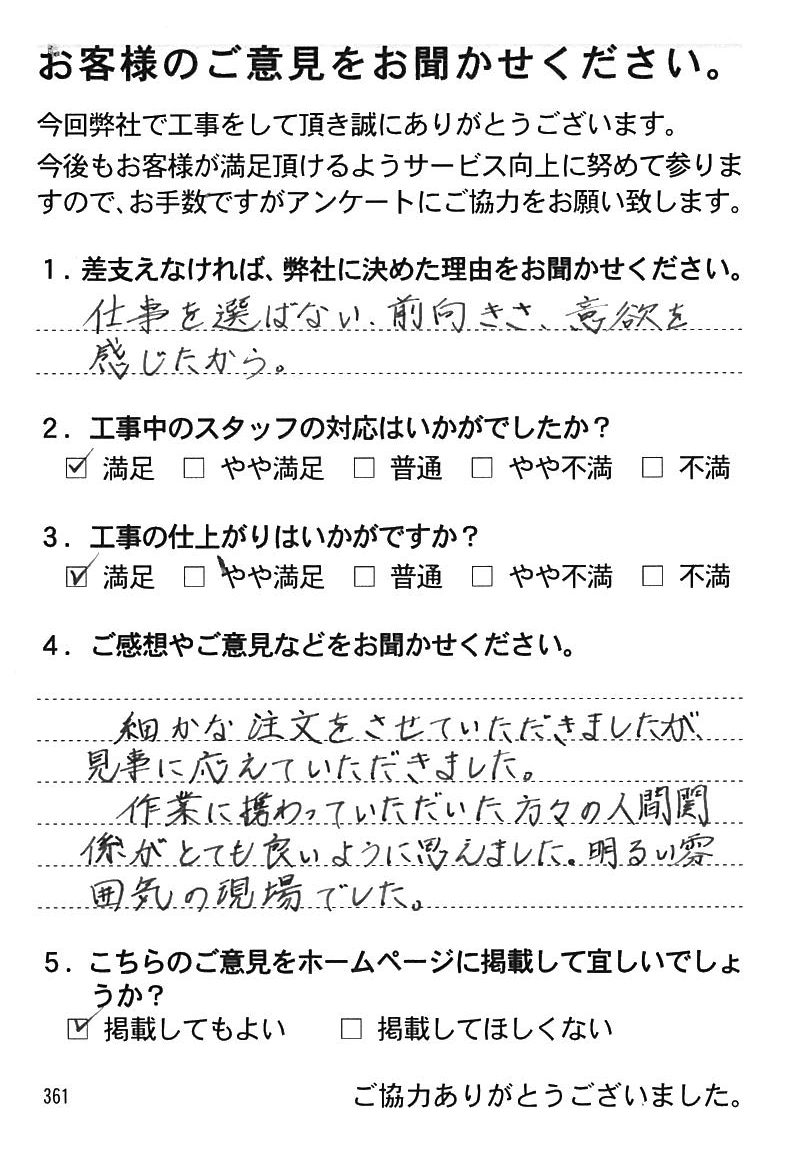 お客様のご意見をお聞かせください。
今回弊社で工事をして頂き誠にありがとうございます。
今後もお客様が満足頂けるようサービス向上に努めて参りま
すので、お手数ですがアンケートにご協力をお願い致します。
1. 差支えなければ、弊社に決めた理由をお聞かせください。
仕事を選ばない、前向きさ、意欲を
感じたから。
2. 工事中のスタッフの対応はいかがでしたか？
☑ 満足 □ やや満足 □ 普通 □ やや不満 □ 不満
3. 工事の仕上がりはいかがですか？
☑ 満足 □ やや満足 □ 普通 □ やや不満 □ 不満
4. ご感想やご意見などをお聞かせください。
細かな注文をさせていただきましたが、
見事に応えていただきました。
作業に携わっていただいた方々の人間関
係がとても良いように思えました。明るい雰
囲気の現場でした。
5. こちらのご意見をホームページに掲載して宜しいでしょ
うか？
☑ 掲載してもよい □ 掲載してほしくない
361 ご協力ありがとうございました。